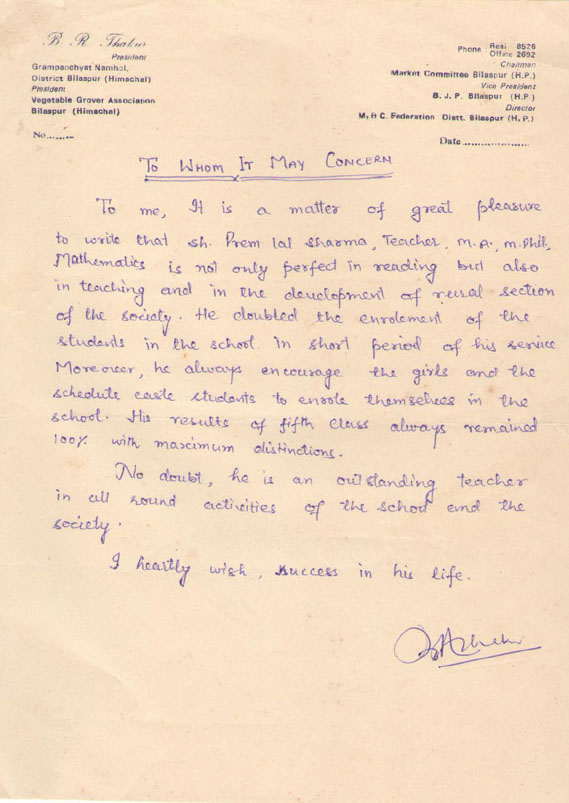 B. R. Thakur
President
Grampanchyat Namhol,
District Bilaspur (Himachal)
President
Vegetable Grover Association
Bilaspur (Himachal)
No.........
Phone : Resi 8526
Office 2692
Chairman
Market Committee Bilaspur (H.P.)
Vice President
B. J. P. Bilaspur (H.P.)
Director
M. & C. Federation Distt. Bilaspur (H.P.)
Date ..................
TO WHOM IT MAY CONCERN
To me, It is a matter of great pleasure
to write that sh. Prem lal Sharma, Teacher, M.A., M.Phil,
Mathematics is not only perfect in reading but also
in teaching and in the development of rural section
of the society. He doubled the enrolement of the
students in the school in short period of his service.
Moreover, he always encourage the girls and the
schedule caste students to enrole themselves in the
school. His results of fifth class always remained
100% with maximum distinctions.
No doubt, he is an outstanding teacher
in all round activities of the school and the
society.
I heartly wish, success in his life.